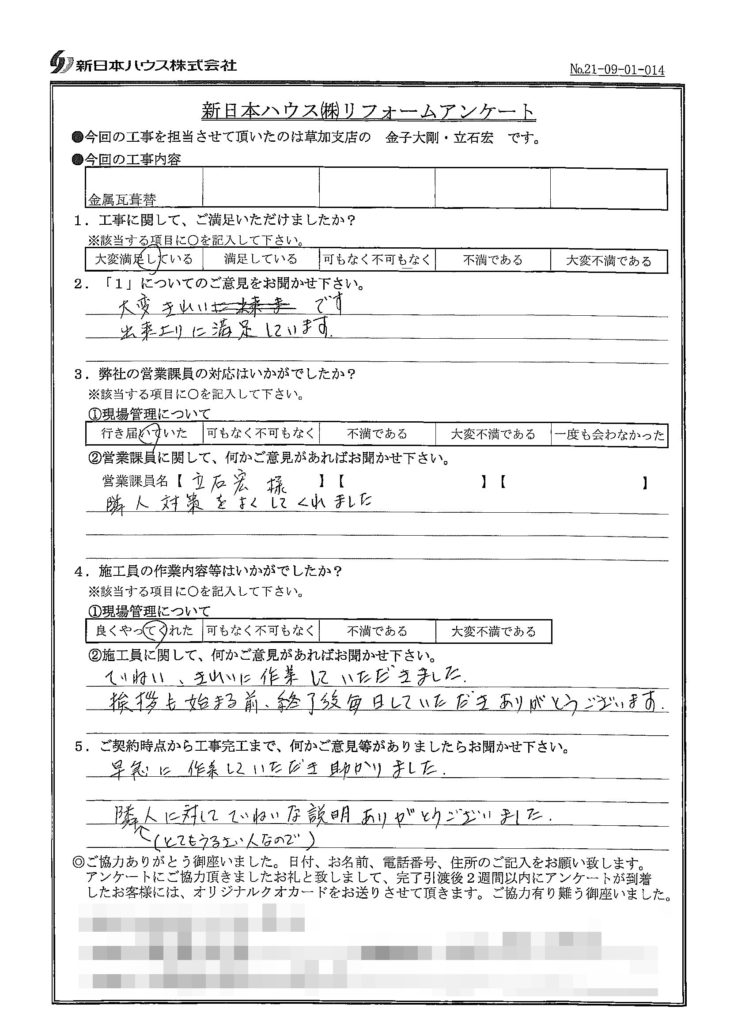 新日本ハウス株式会社
No.21-09-01-014
新日本ハウス㈱リフォームアンケート
●今回の工事を担当させて頂いたのは草加支店の 金子大剛・立石宏 です。
●今回の工事内容
金属瓦葺替
1．工事に関して、ご満足いただけましたか？
※該当する項目に○を記入して下さい。
大変満足している 満足している 可もなく不可もなく 不満である 大変不満である
2．「1」についてのご意見をお聞かせ下さい。
大変きれいに出来ま です
出来上りに満足しています.
3．弊社の営業課員の対応はいかがでしたか？
※該当する項目に○を記入して下さい。
①現場管理について
行き届いていた 可もなく不可もなく 不満である 大変不満である 一度も会わなかった
②営業課員に関して、何かご意見があればお聞かせ下さい。
営業課員名【 立石宏 様 】【 】【 】
隣人対策をよくしてくれました
4．施工員の作業内容等はいかがでしたか？
※該当する項目に○を記入して下さい。
①現場管理について
良くやってくれた 可もなく不可もなく 不満である 大変不満である
②施工員に関して、何かご意見があればお聞かせ下さい。
ていねい、きれいに作業していただきました.
挨拶も始まる前、終了後毎日していただきありがとうございます.
5．ご契約時点から工事完工まで、何かご意見等がありましたらお聞かせ下さい。
早急に作業していただき助かりました.
隣人に対してていねいな説明ありがとうございました.
(とてもうるさい人なので)
◎ご協力ありがとう御座いました。日付、お名前、電話番号、住所のご記入をお願い致します。
アンケートにご協力頂きましたお礼と致しまして、完了引渡後２週間以内にアンケートが到着
したお客様には、オリジナルクオカードをお送りさせて頂きます。ご協力有り難う御座いました。